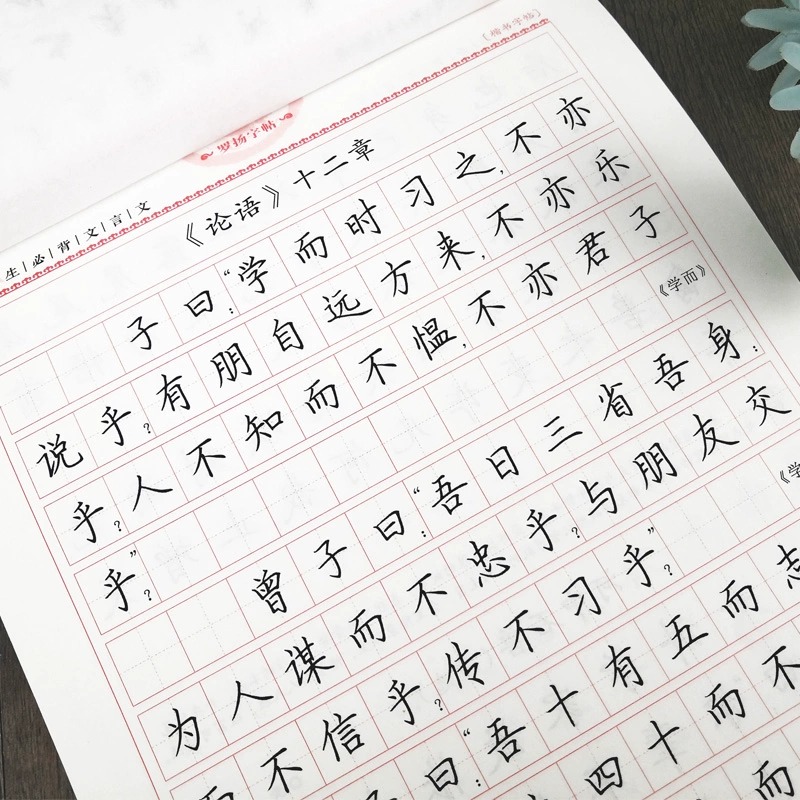 〔楷书字帖〕
罗扬字帖
生|必|背|文|言|文
《论语》十二章
子曰:“学而时习之,不亦
说乎?有朋自远方来,不亦乐
乎?人不知而不愠,不亦君子
乎?” 《学而》
曾子曰:“吾日三省吾身:
为人谋而不忠乎?与朋友交
而不信乎?传不习乎?” 《学
子曰:“吾十有五而志
四十而不
而